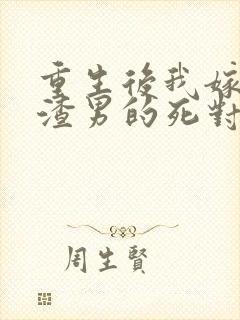 重生後我嫁
渣男的死對
周生賢